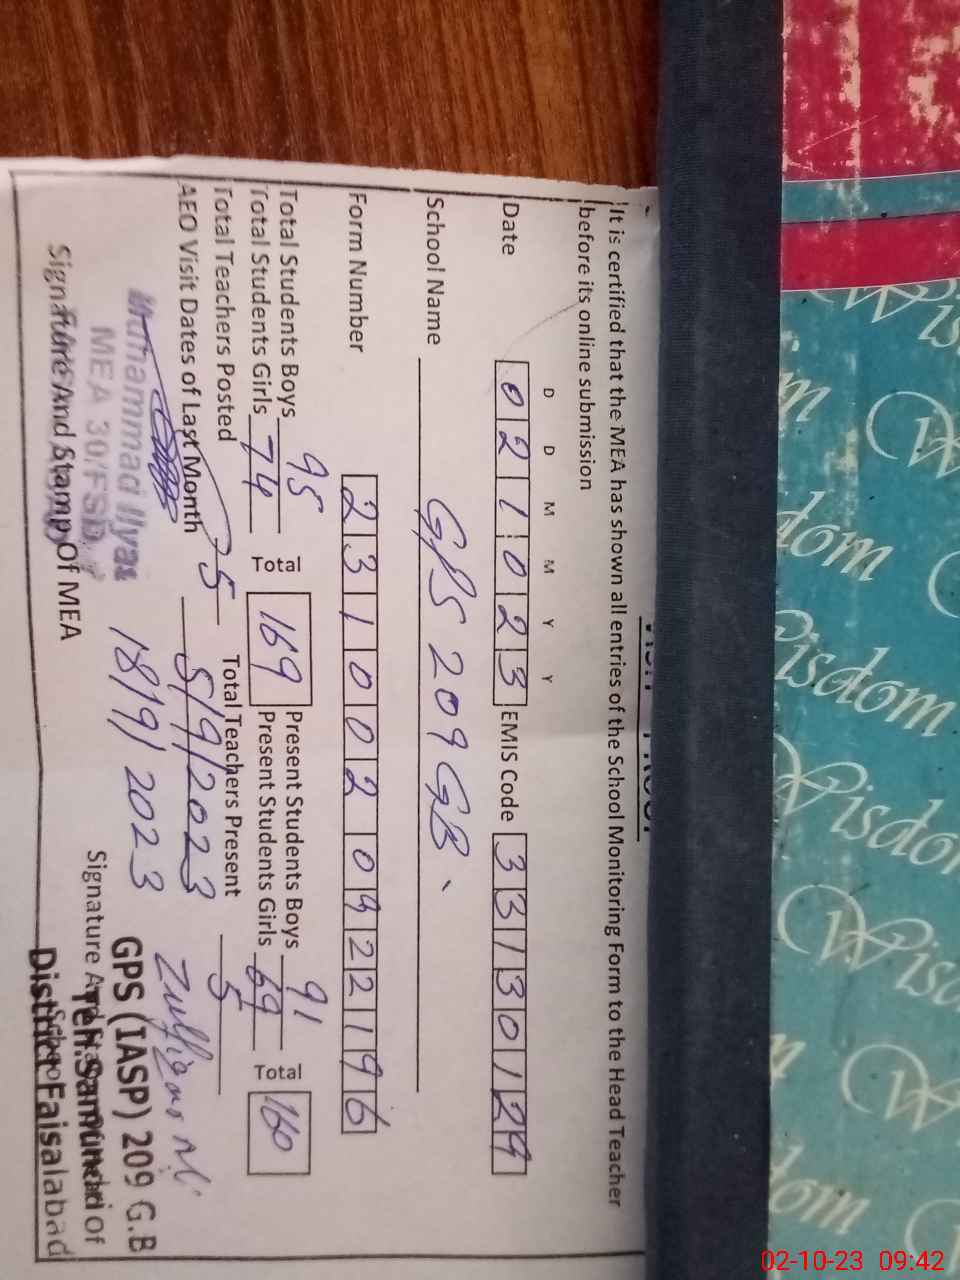 It is certified that the MEA has shown all entries of the School Monitoring Form to the Head Teacher
before its online submission
D D M M Y Y
Date 0 2 1 0 2 3 EMIS Code 3 3 1 3 0 1 2 9
School Name GPS 209 GB
Form Number 2 3 1 0 0 2 0 9 2 2 1 9 6
Total Students Boys 95 Total 169 Present Students Boys 91 Total 160
Total Students Girls 74 Present Students Girls 69
Total Teachers Posted 5 Total Teachers Present 5
AEO Visit Dates of Last Month 5/9/2023
18/9/2023
Muhammad Ilyas
MEA 30/FSD
Signature And Stamp Of MEA
Signature And
GPS (IASP) 209 G.B
Teh. Samundri
District Faisalabad
Wisdom Wisdom Wisdom
02-10-23 09:42